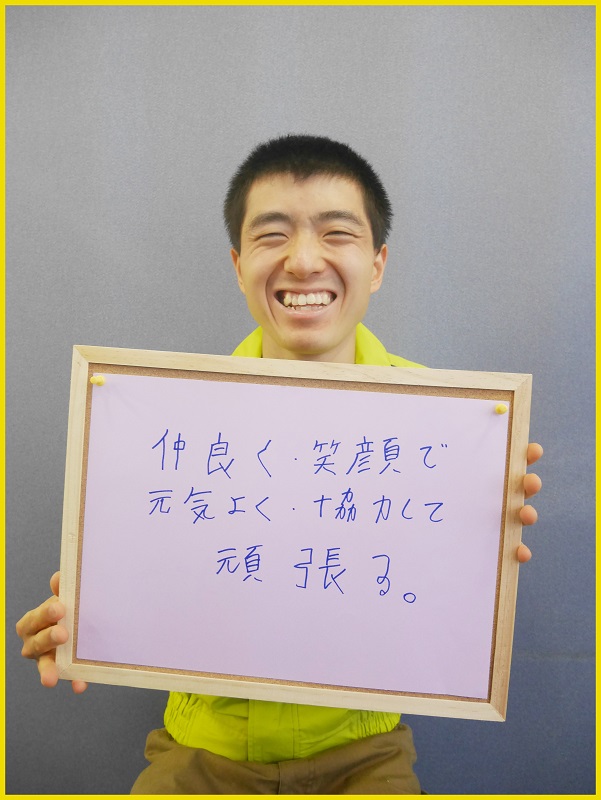 仲良く・笑顔で
元気よく・協力して
頑張る。